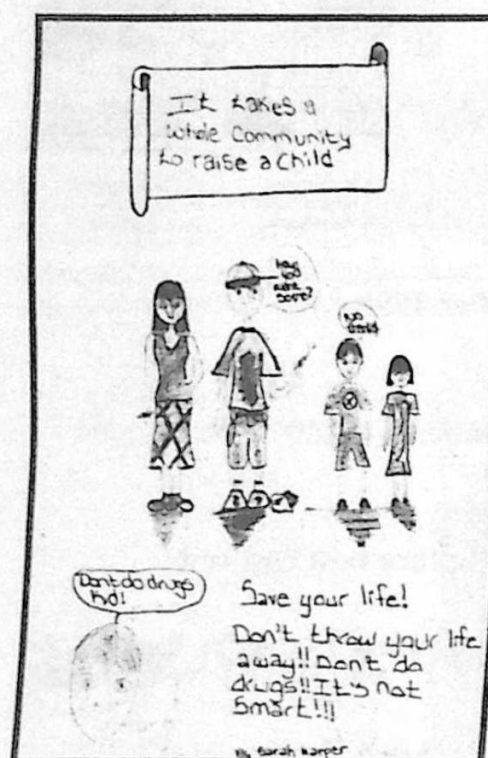 It takes a
whole Community
to raise a Child
No
Dont do drugs
kid!
Save your life!
Don't throw your life
away!! Dont do
drugs!! It's not
Smart!!!
By Sarah Harper